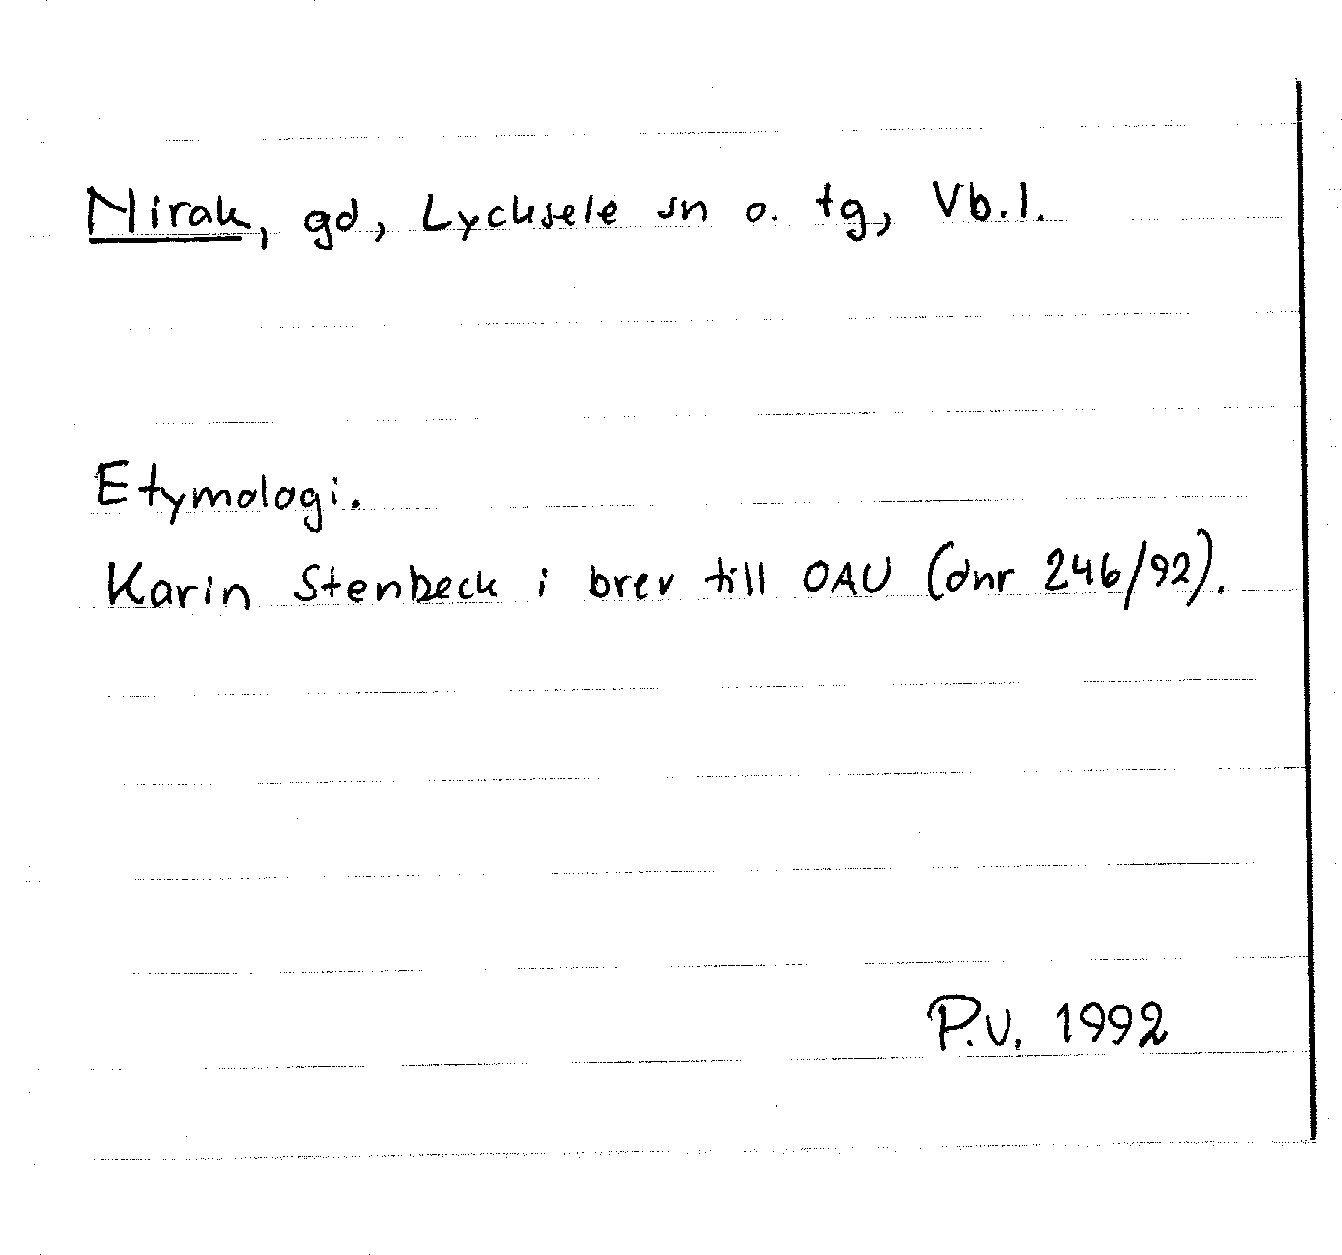 Nirak, gd, Lycksele sn o. tg, Vb.l.
Etymologi.
Karin Stenbeck i brev till OAU (dnr 246/92).
P.V. 1992